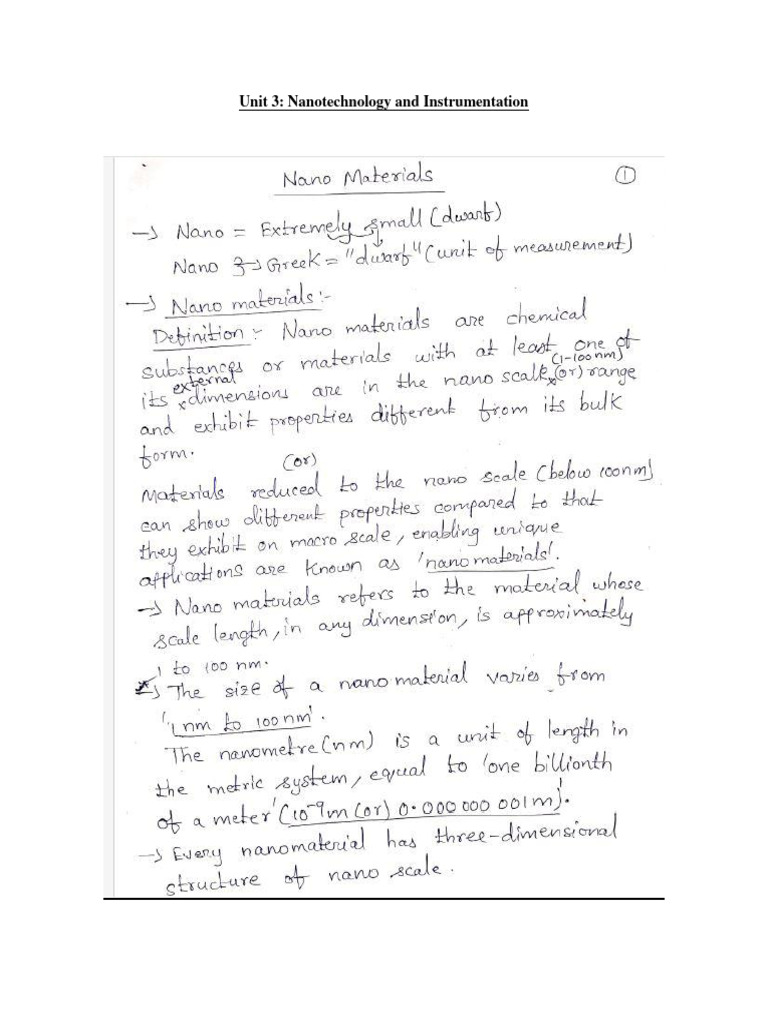 Unit 3: Nanotechnology and Instrumentation
Nano Materials
1
→ Nano = Extremely small (dwarf)
Nano → Greek = "dwarf" (unit of measurement)
→ Nano materials :-
Definition :- Nano materials are chemical
substances or materials with at least one of
its external dimensions are in the nano scale (1-100nm) (or) range
and exhibit properties different from its bulk
form.
(or)
Materials reduced to the nano scale (below 100nm)
can show different properties compared to that
they exhibit on macro scale, enabling unique
applications are known as 'nanomaterials'.
→ Nano materials refers to the material whose
scale length, in any dimension, is approximately
1 to 100 nm.
→ The size of a nanomaterial varies from
'1nm to 100nm'.
The nanometre (nm) is a unit of length in
the metric system, equal to 'one billionth
of a meter' (10⁻⁹m (or) 0.000 000 001m).
→ Every nanomaterial has three-dimensional
structure of nano scale.